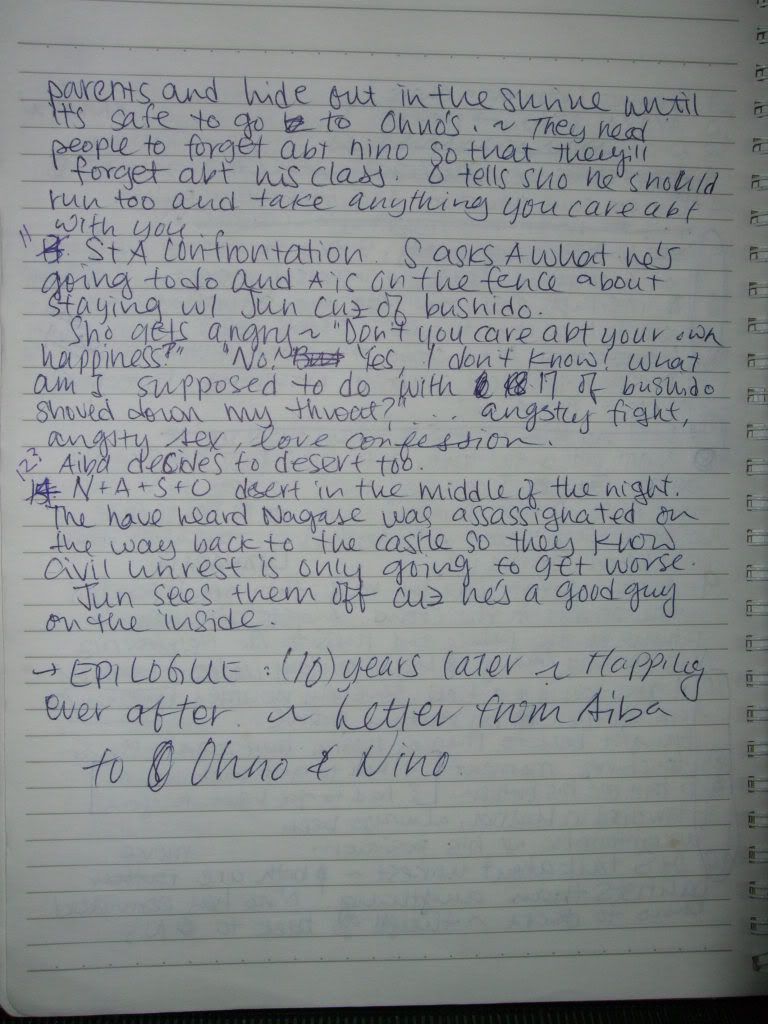 parents and hide out in the shrine until
it's safe to go to Ohno's. ~ They need
people to forget abt nino so that they'll
forget abt his class. O tells sho he should
run too and take anything you care abt
with you.
11 S+A Confrontation. S asks A what he's
going to do and A is on the fence about
staying w/ Jun cuz of bushido.
Sho gets angry ~ "Don't you care abt your own
happiness?" "No. Yes, I don't know! What
am I supposed to do with 17 of bushido
shoved down my throat?" ... angsty fight,
angsty sex, love confession.
12? Aiba decides to desert too.
N+A+S+O desert in the middle of the night.
The have heard Nagase was assassignated on
the way back to the castle so they know
civil unrest is only going to get worse.
Jun sees them off cuz he's a good guy
on the inside.
→ EPILOGUE : (10) years later ~ Happily
ever after. ~ Letter from Aiba
to Ohno & Nino.